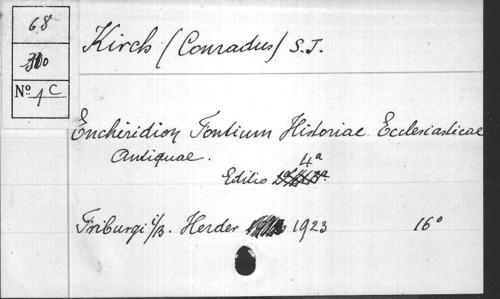 68
Kirch (Conradus) S.J.
Nº 4 C
Enchiridion Fontium Historiae Ecclesiasticae
Antiquae.
4ª
Editio
Friburgi i/B. Herder 1923 16º